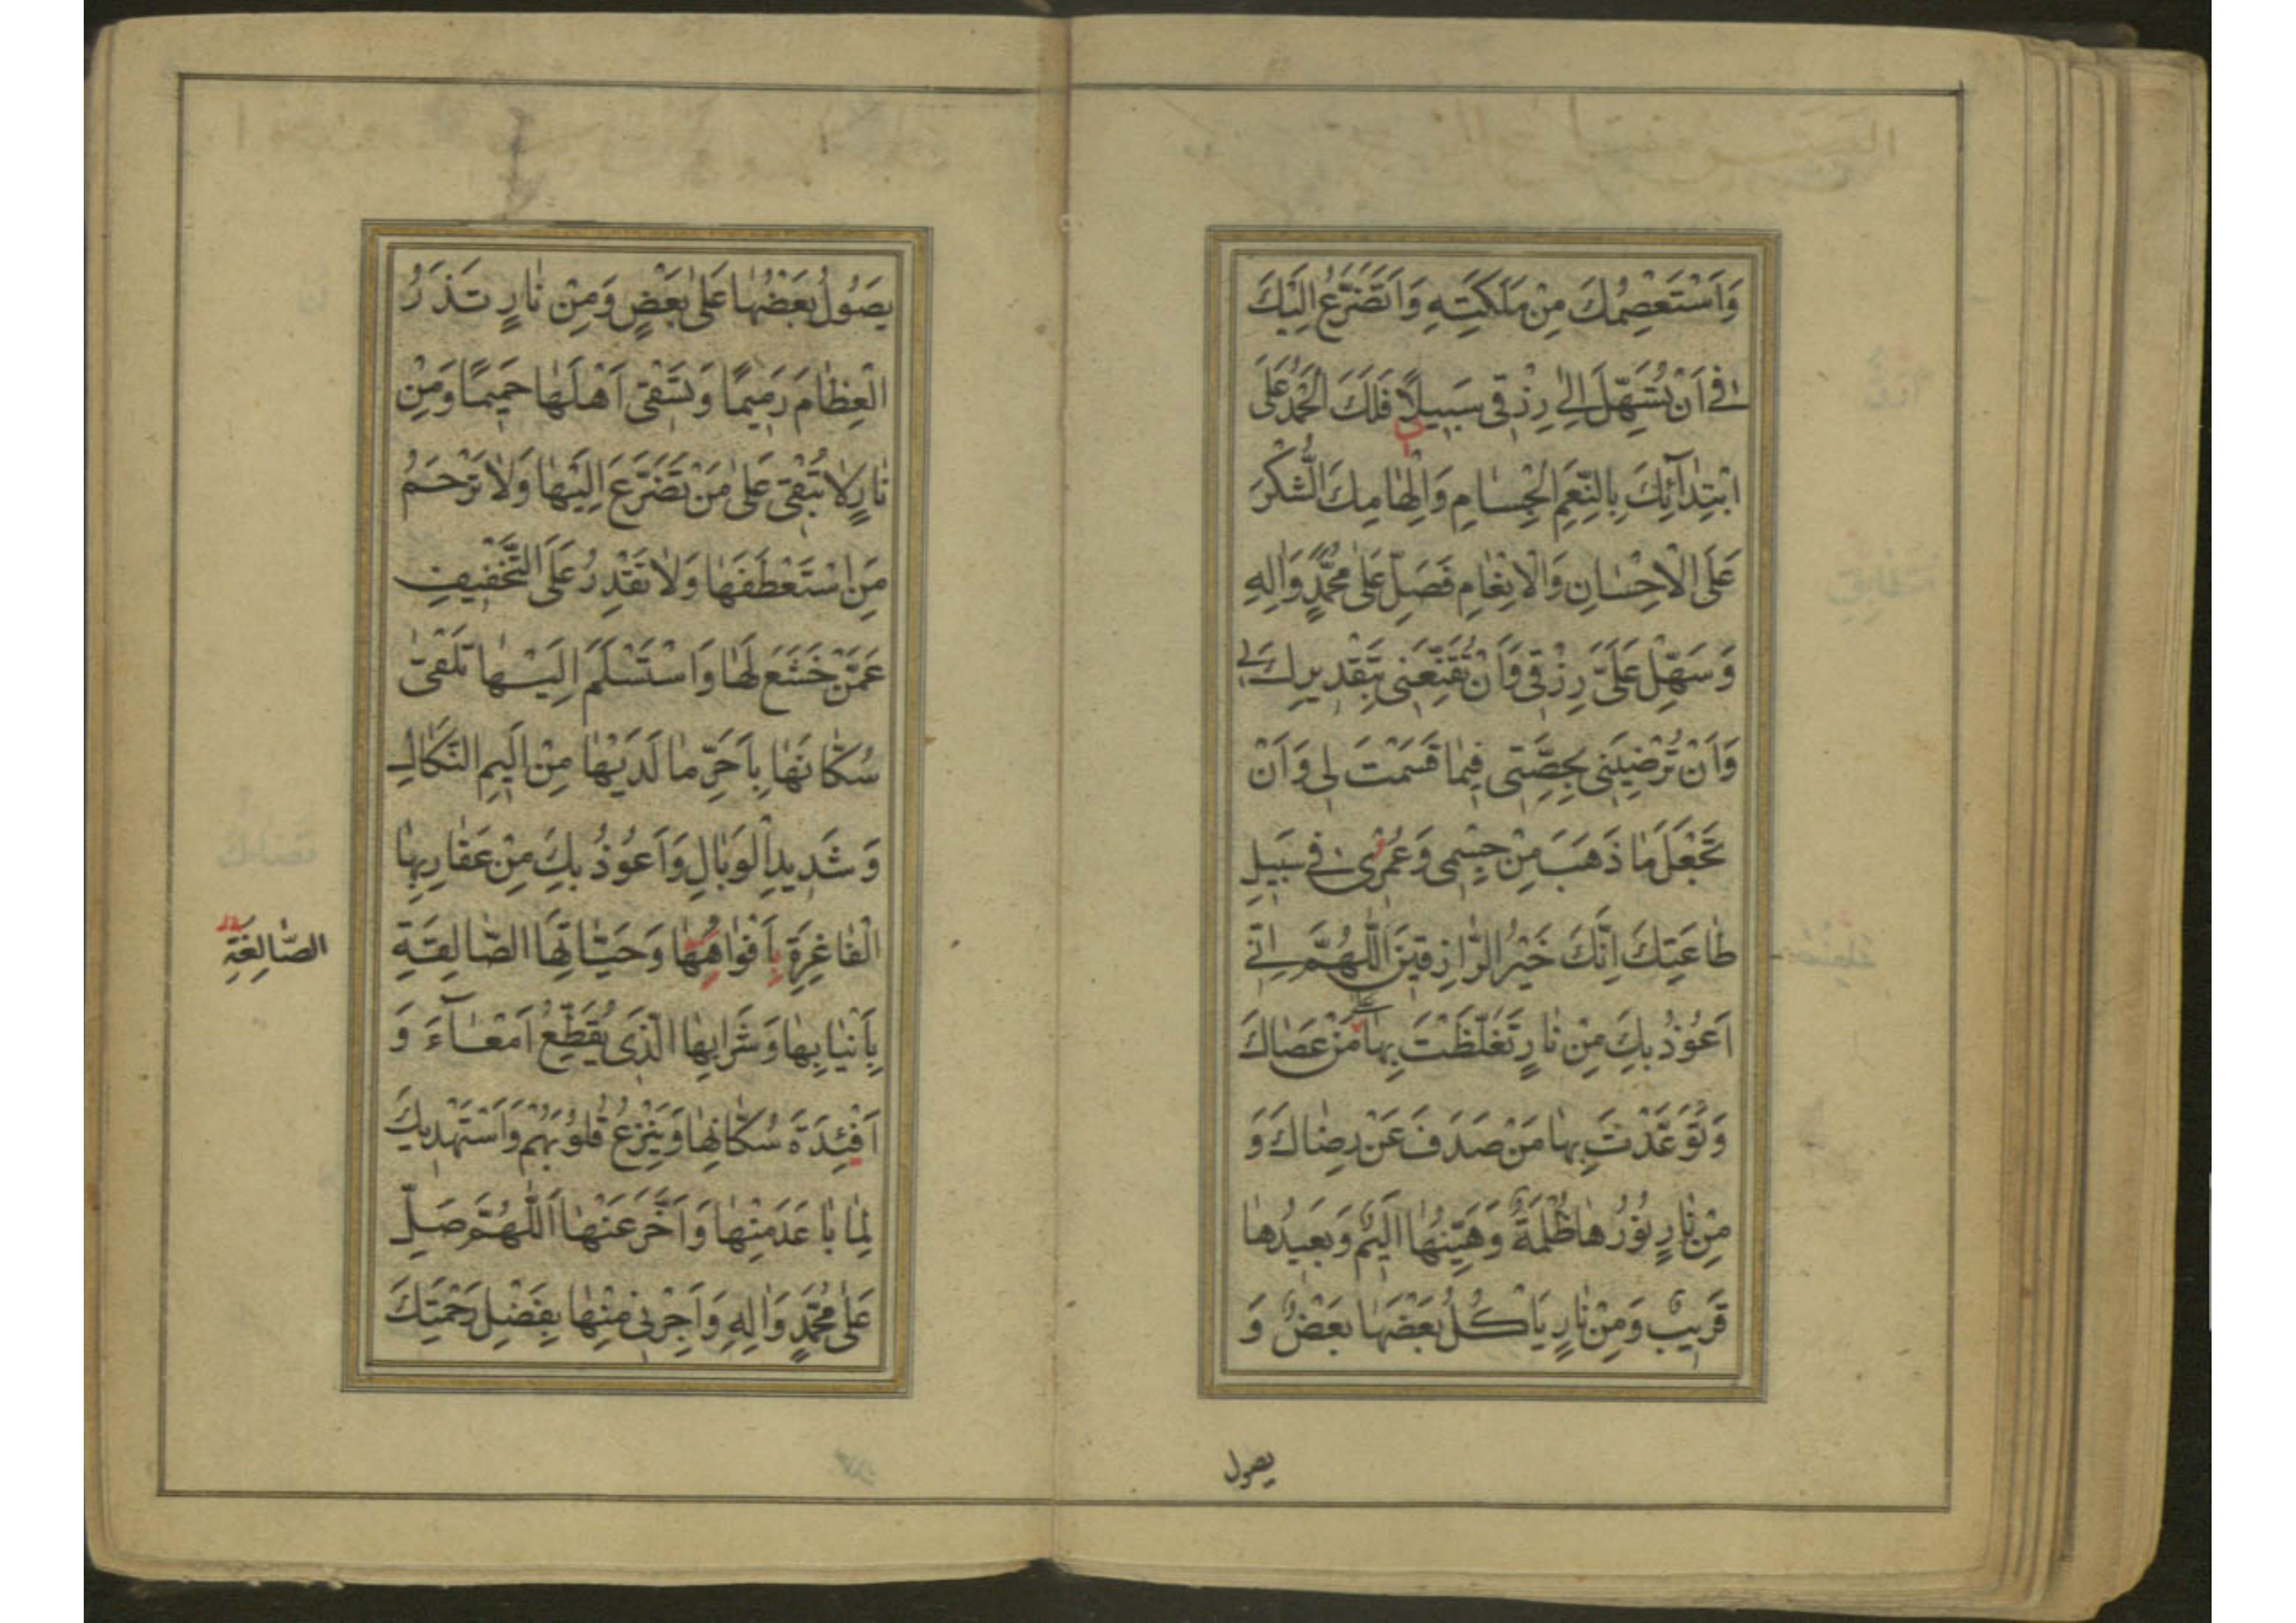 وَاَسْتَعْصِمُكَ مِنْ مَلَكَتِهِ وَاَتَضَرَّعُ اِلَيْكَ
فِي اَنْ تُسَهِّلَ اِلٰى رِزْقِي سَبِيلًا فَلَكَ الْحَمْدُ عَلَى
ابْتِدَآئِكَ بِالنِّعَمِ الْجِسَامِ وَاِلْهَامِكَ الشُّكْرَ
عَلَى الْاِحْسَانِ وَالْاِنْعَامِ فَصَلِّ عَلٰى مُحَمَّدٍ وَاٰلِهِ
وَسَهِّلْ عَلَيَّ رِزْقِي وَاَنْ تُقَنِّعَنِي بِتَقْدِيرِكَ لِي
وَاَنْ تُرْضِيَنِي بِحِصَّتِي فِيمَا قَسَمْتَ لِي وَاَنْ
تَجْعَلَ مَا ذَهَبَ مِنْ جِسْمِي وَعُمُرِي فِي سَبِيلِ
طَاعَتِكَ اِنَّكَ خَيْرُ الرَّازِقِينَ اَللّٰهُمَّ اِنِّي
اَعُوذُ بِكَ مِنْ نَارٍ تَغَلَّظْتَ بِهَا عَلٰى مَنْ عَصَاكَ
وَتَوَعَّدْتَ بِهَا مَنْ صَدَفَ عَنْ رِضَاكَ وَ
مِنْ نَارٍ نُورُهَا ظُلْمَةٌ وَهَيِّنُهَا اَلِيمٌ وَبَعِيدُهَا
قَرِيبٌ وَمِنْ نَارٍ يَاْكُلُ بَعْضَهَا بَعْضٌ وَ
يصول
يَصُولُ بَعْضُهَا عَلٰى بَعْضٍ وَمِنْ نَارٍ تَذَرُ
الْعِظَامَ رَمِيمًا وَتَسْقِي اَهْلَهَا حَمِيمًا وَمِنْ
نَارٍ لَا تُبْقِي عَلٰى مَنْ تَضَرَّعَ اِلَيْهَا وَلَا تَرْحَمُ
مَنِ اسْتَعْطَفَهَا وَلَا تَقْدِرُ عَلَى التَّخْفِيفِ
عَمَّنْ خَشَعَ لَهَا وَاسْتَسْلَمَ اِلَيْهَا تَلْقٰى
سُكَّانَهَا بِاَحَرِّ مَا لَدَيْهَا مِنْ اَلِيمِ النَّكَالِ
وَشَدِيدِ الْوَبَالِ وَاَعُوذُ بِكَ مِنْ عَقَارِبِهَا
الْفَاغِرَةِ بِاَفْوَاهِهَا وَحَيَّاتِهَا الصَّالِقَةِ
الصَّالِغَةِ
بِاَنْيَابِهَا وَشَرَابِهَا الَّذِي يُقَطِّعُ اَمْعَآءَ وَ
اَفْئِدَةَ سُكَّانِهَا وَيَنْزِعُ قُلُوبَهُمْ وَاَسْتَهْدِيكَ
لِمَا بَاعَدَ مِنْهَا وَاَخَّرَ عَنْهَا اَللّٰهُمَّ صَلِّ
عَلٰى مُحَمَّدٍ وَاٰلِهِ وَاَجِرْنِي مِنْهَا بِفَضْلِ رَحْمَتِكَ